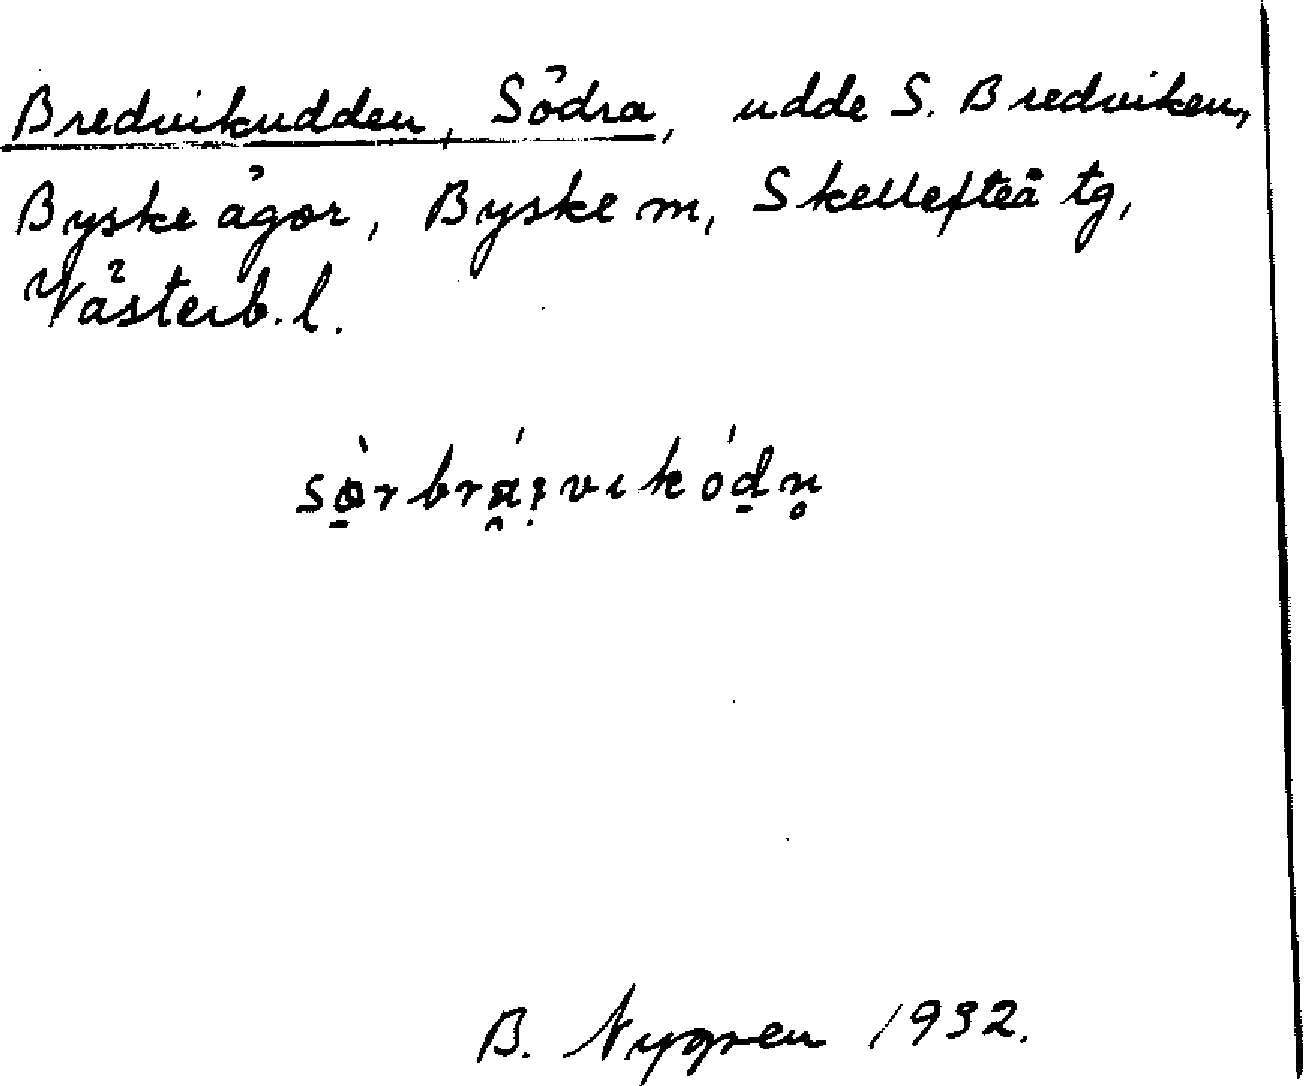 Bredvikudden, Södra, udde S. Bredviken,
Byske ägor, Byske m, Skellefteå tg,
Västerb. l.
B. Nygren 1932.